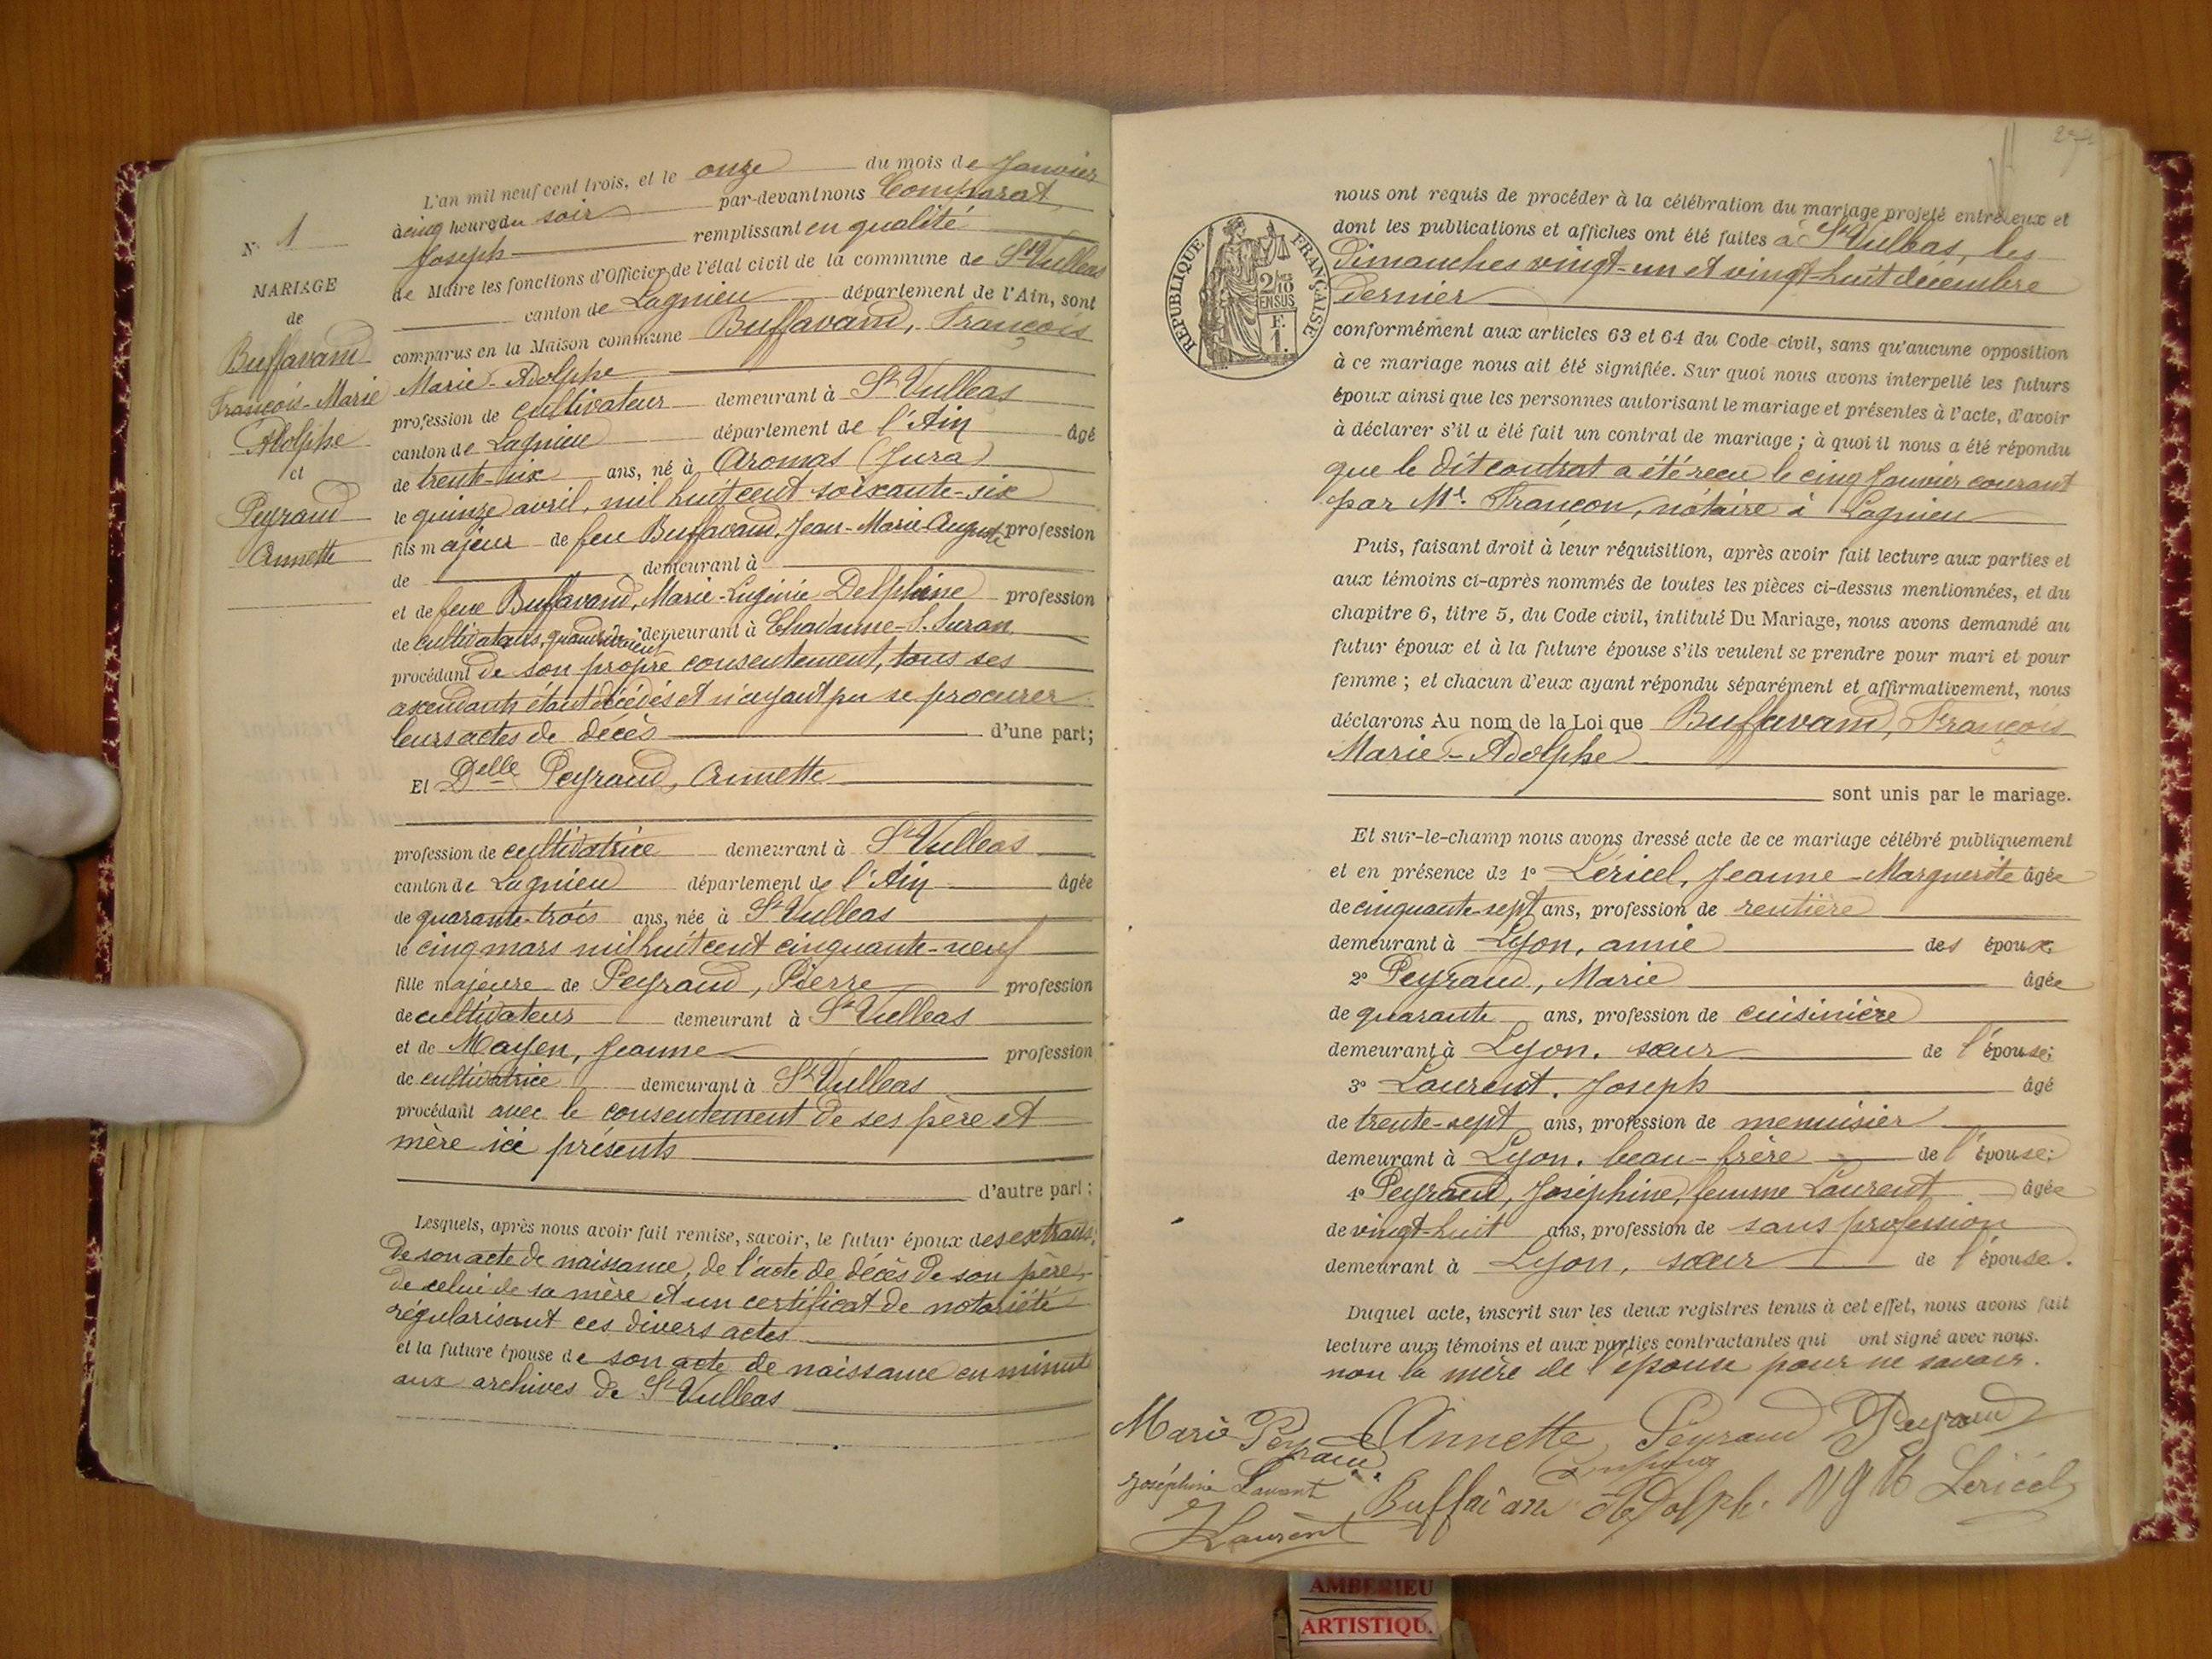 N° 1
MARIAGE
de
Buffavand
François-Marie
Adolphe
et
Peyraud
Annette
L'an mil neuf cent trois, et le onze du mois de Janvier
à cinq heures du soir par-devant nous Comparat
Joseph remplissant en qualité
de Maire les fonctions d'Officier de l'état civil de la commune de St Vulbas
canton de Lagnieu département de l'Ain, sont
comparus en la Maison commune Buffavand, François
Marie-Adolphe
profession de cultivateur demeurant à St Vulbas
canton de Lagnieu département de l'Ain âgé
de trente-six ans, né à Aromas (Jura)
le quinze avril, mil huit cent soixante-six
fils majeur de feu Buffavand, Jean-Marie Auguste profession
de demeurant à
et de feue Buffavand, Marie-Eugénie Delphine profession
de cultivateurs, quand vivaient demeurant à Chavanne-S. Suran
procédant de son propre consentement, tous ses
ascendants étant décédés et n'ayant pu se procurer
leurs actes de décès d'une part;
Et Delle Peyraud, Annette
profession de cultivatrice demeurant à St Vulbas
canton de Lagnieu département de l'Ain âgée
de quarante-trois ans, née à St Vulbas
le cinq mars mil huit cent cinquante-neuf
fille majeure de Peyraud, Pierre profession
de cultivateur demeurant à St Vulbas
et de Mayen, Jeanne profession
de cultivatrice demeurant à St Vulbas
procédant avec le consentement de ses père et
mère ici présents
d'autre part;
Lesquels, après nous avoir fait remise, savoir, le futur époux des extraits,
de son acte de naissance, de l'acte de décès de son père,
de celui de sa mère et un certificat de notoriété
régularisant ces divers actes
et la future épouse de son acte de naissance en minute
aux archives de St Vulbas
RÉPUBLIQUE FRANÇAISE
2/10
EN SUS
F.
1.
nous ont requis de procéder à la célébration du mariage projeté entre eux et
dont les publications et affiches ont été faites à St Vulbas, les
Dimanches vingt-un et vingt-huit décembre
dernier
conformément aux articles 63 et 64 du Code civil, sans qu'aucune opposition
à ce mariage nous ait été signifiée. Sur quoi nous avons interpellé les futurs
époux ainsi que les personnes autorisant le mariage et présentes à l'acte, d'avoir
à déclarer s'il a été fait un contrat de mariage; à quoi il nous a été répondu
que le dit contrat a été reçu le cinq Janvier courant
par Me. Françon, notaire à Lagnieu
Puis, faisant droit à leur réquisition, après avoir fait lecture aux parties et
aux témoins ci-après nommés de toutes les pièces ci-dessus mentionnées, et du
chapitre 6, titre 5, du Code civil, intitulé Du Mariage, nous avons demandé au
futur époux et à la future épouse s'ils veulent se prendre pour mari et pour
femme; et chacun d'eux ayant répondu séparément et affirmativement, nous
déclarons Au nom de la Loi que Buffavand, François
Marie-Adolphe
sont unis par le mariage.
Et sur-le-champ nous avons dressé acte de ce mariage célébré publiquement
et en présence de 1° Léricel, Jeanne-Marguerite âgée
de cinquante-sept ans, profession de rentière
demeurant à Lyon, amie des époux;
2° Peyraud, Marie âgée
de quarante ans, profession de cuisinière
demeurant à Lyon. sœur de l'épouse;
3° Laurent. Joseph âgé
de trente-sept ans, profession de menuisier
demeurant à Lyon. beau-frère de l'épouse;
4° Peyraud, Joséphine, femme Laurent âgée
de vingt-huit ans, profession de sans profession
demeurant à Lyon, sœur de l'épouse.
Duquel acte, inscrit sur les deux registres tenus à cet effet, nous avons fait
lecture aux témoins et aux parties contractantes qui ont signé avec nous.
non la mère de l'épouse pour ne savoir.
Marie Peyraud Annette Peyraud Peyraud
Joséphine Laurent Buffavand Adolph. Léricel
J Laurent
AMBERIEU
ARTISTIQU